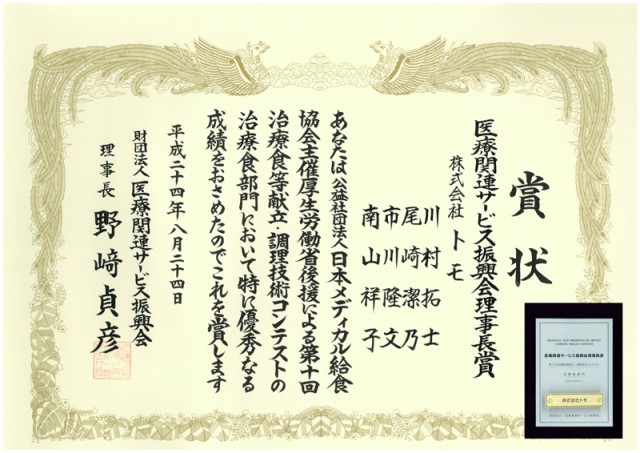 賞状
医療関連サービス振興会理事長賞
株式会社 トモ
川村拓士
尾崎潔乃
市川隆文
南山祥子
あなたは公益社団法人日本メディカル給食
協会主催厚生労働省後援による第十回
治療食等献立・調理技術コンテストの
治療食部門において特に優秀なる
成績をおさめたのでこれを賞します
平成二十四年八月二十四日
財団法人 医療関連サービス振興会
理事長 野﨑貞彦
株式会社トモ